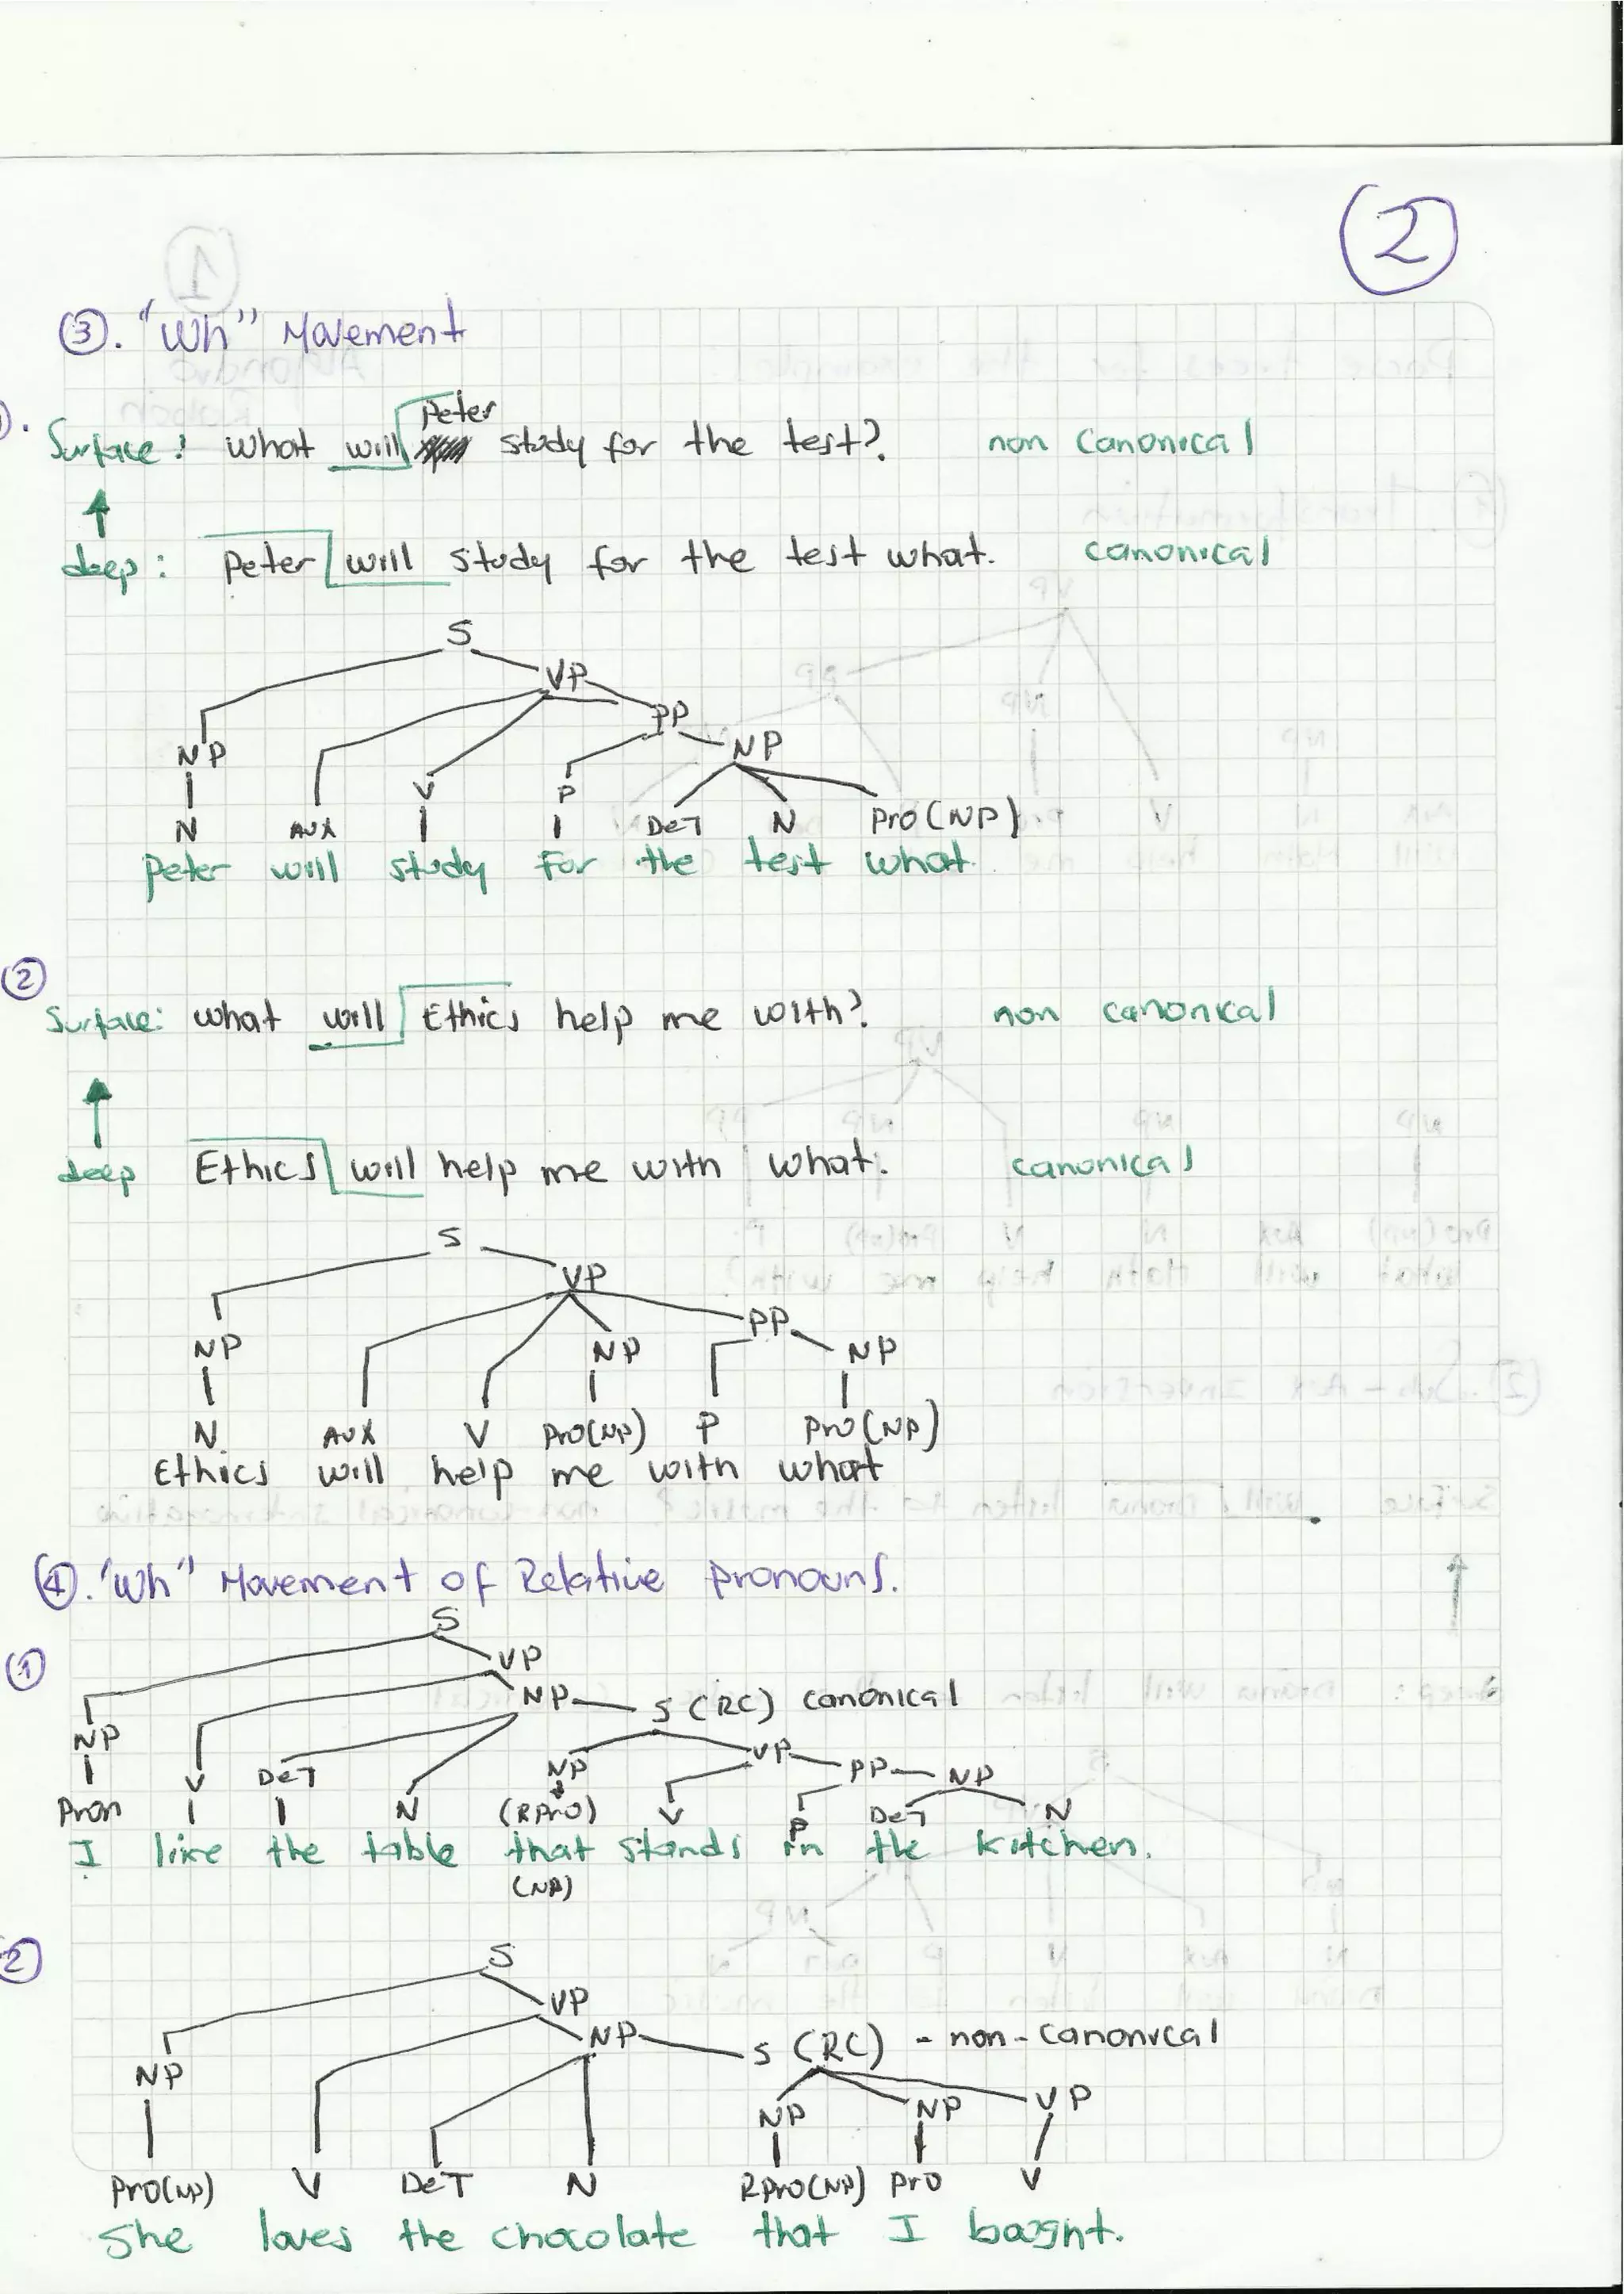 2
③. "Wh" Movement
Peter
Surface: what will study for the test? non canonical
deep: Peter will study for the test what. canonical
S
VP
PP
NP NP
V P
N AUX DeT N Pro(NP)
Peter will study for the test what
②
Surface: what will Ethics help me with? non canonical
deep Ethics will help me with what. canonical
S
VP
PP
NP NP NP
N AUX V Pro(NP) P Pro(NP)
Ethics will help me with what
④. "Wh" Movement of Relative pronouns.
S
① VP
NP S (RC) canonical
NP NP VP PP NP
V DeT
Pron N (RPro) V P DeT N
I like the table that stands in the kitchen.
(NP)
② S
VP
NP S (RC) - non-canonical
NP NP NP VP
Pro(NP) V DeT N RPro(NP) Pro V
She loves the chocolate that I